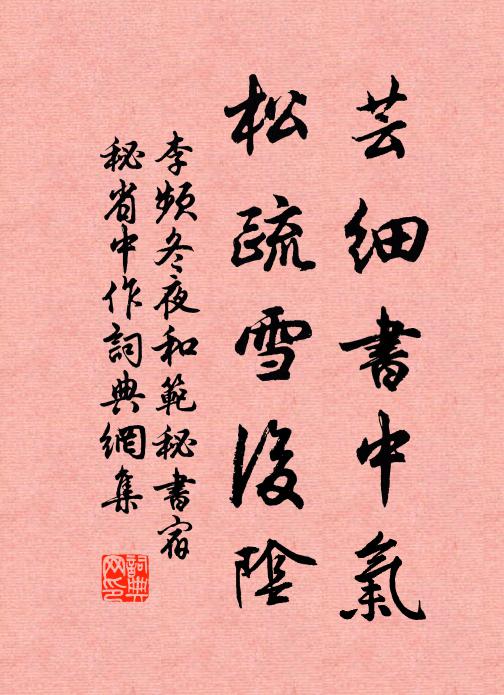 芸細書中氣
松疏雪後陰
李頻冬夜和範秘書宿
秘省中作詞典網集
詞典网印